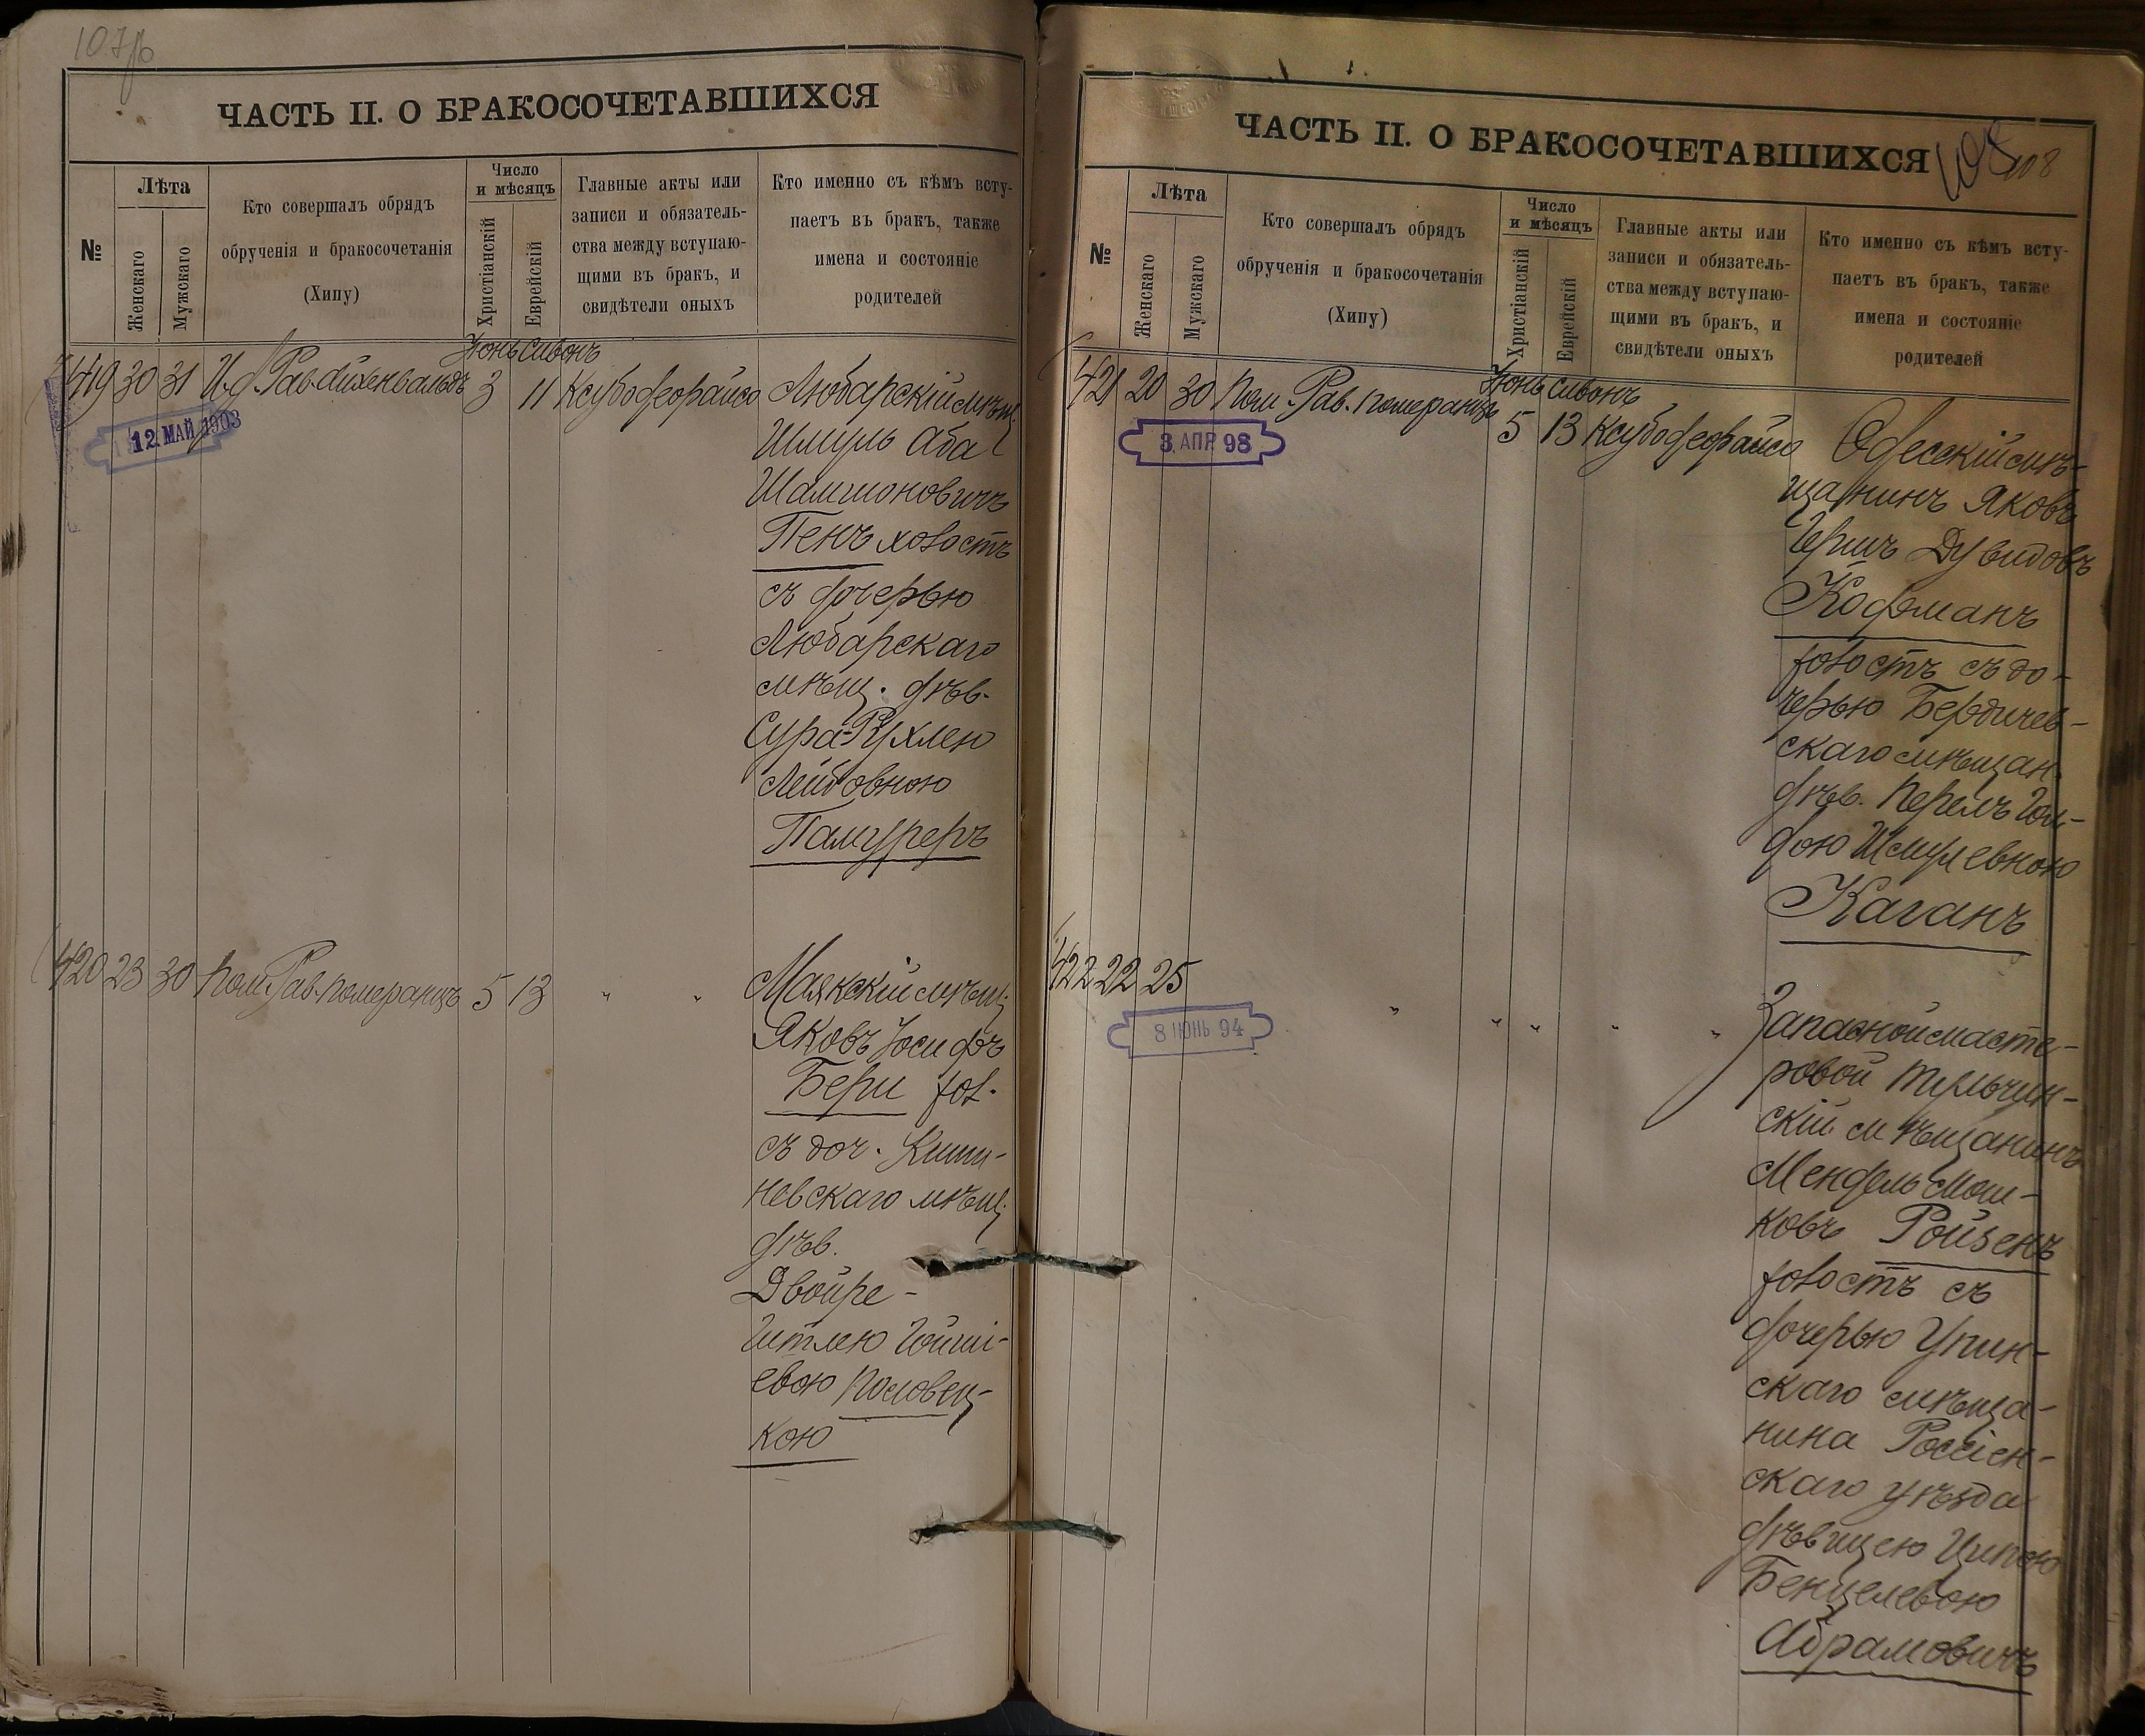 107об
ЧАСТЬ II. О БРАКОСОЧЕТАВШИХСЯ
№
Лѣта
Женскаго
Мужскаго
Кто совершалъ обрядъ
обрученія и бракосочетанія
(Хипу)
Число
и мѣсяцъ
Христіанскій
Еврейскій
Главные акты или
записи и обязатель-
ства между вступаю-
щими въ бракъ, и
свидѣтели оныхъ
Кто именно съ кѣмъ всту-
паетъ въ бракъ, также
имена и состояніе
родителей
Іюнь Сивонъ
419 30 31 И.д. Рав. Айхенвальдъ 3 11 Ксубо деорайсо Любарскій мѣщ.
12 МАЙ 1903
Шмуль Аба
Шамшоновичъ
Пенъ холостъ
съ дочерью
Любарскаго
мѣщ. дѣв.
Сура-Рухлею
Лейбовною
420 23 30 Пом. Рав. Померанцъ 5 13 " " Маякскій мѣщ.
Яковъ Іосифъ
Бери хол.
съ доч. Киши-
невскаго мѣщ.
дѣв.
Двойре-
Гитлею
евою Половец-
кою
108
108
ЧАСТЬ II. О БРАКОСОЧЕТАВШИХСЯ
№
Лѣта
Женскаго
Мужскаго
Кто совершалъ обрядъ
обрученія и бракосочетанія
(Хипу)
Число
и мѣсяцъ
Христіанскій
Еврейскій
Главные акты или
записи и обязатель-
ства между вступаю-
щими въ бракъ, и
свидѣтели оныхъ
Кто именно съ кѣмъ всту-
паетъ въ бракъ, также
имена и состояніе
родителей
Іюнь Сивонъ
421 20 30 Пом. Рав. Померанцъ 5 13 Ксубо деорайсо Одесскій мѣ-
3 АПР 98
щанинъ Яковъ
Гершъ Дувидовъ
Кофманъ
холостъ съ до-
черью Бердичев-
скаго мѣщан.
дѣв. Перель Гол-
дою Шмулевною
Каганъ
422 22 25 " " " " " Запасной масте-
8 ІЮНЬ 94
ровой Тульчин-
скій мѣщанинъ
Мендель Мош-
ковъ Ройзенъ
холостъ съ
дочерью Упин-
скаго мѣща-
нина Россіен-
скаго уѣзда
дѣвицею Ципою
Бенцелевою
Абрамовичъ